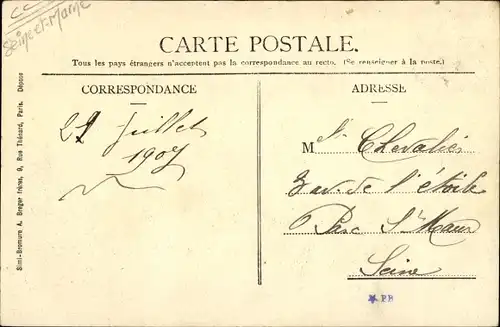 CC
Seine-et-Marne
CARTE POSTALE.
Tous les pays étrangers n'acceptent pas la correspondance au recto. (Se renseigner à la poste.)
CORRESPONDANCE
22 Juillet
1907
ADRESSE
M Chevalier
3 av. de l'étoile
Parc St Maur
Seine
PB
Simi-Bromure A. Breger frères, 9, Rue Thénard, Paris. Déposé